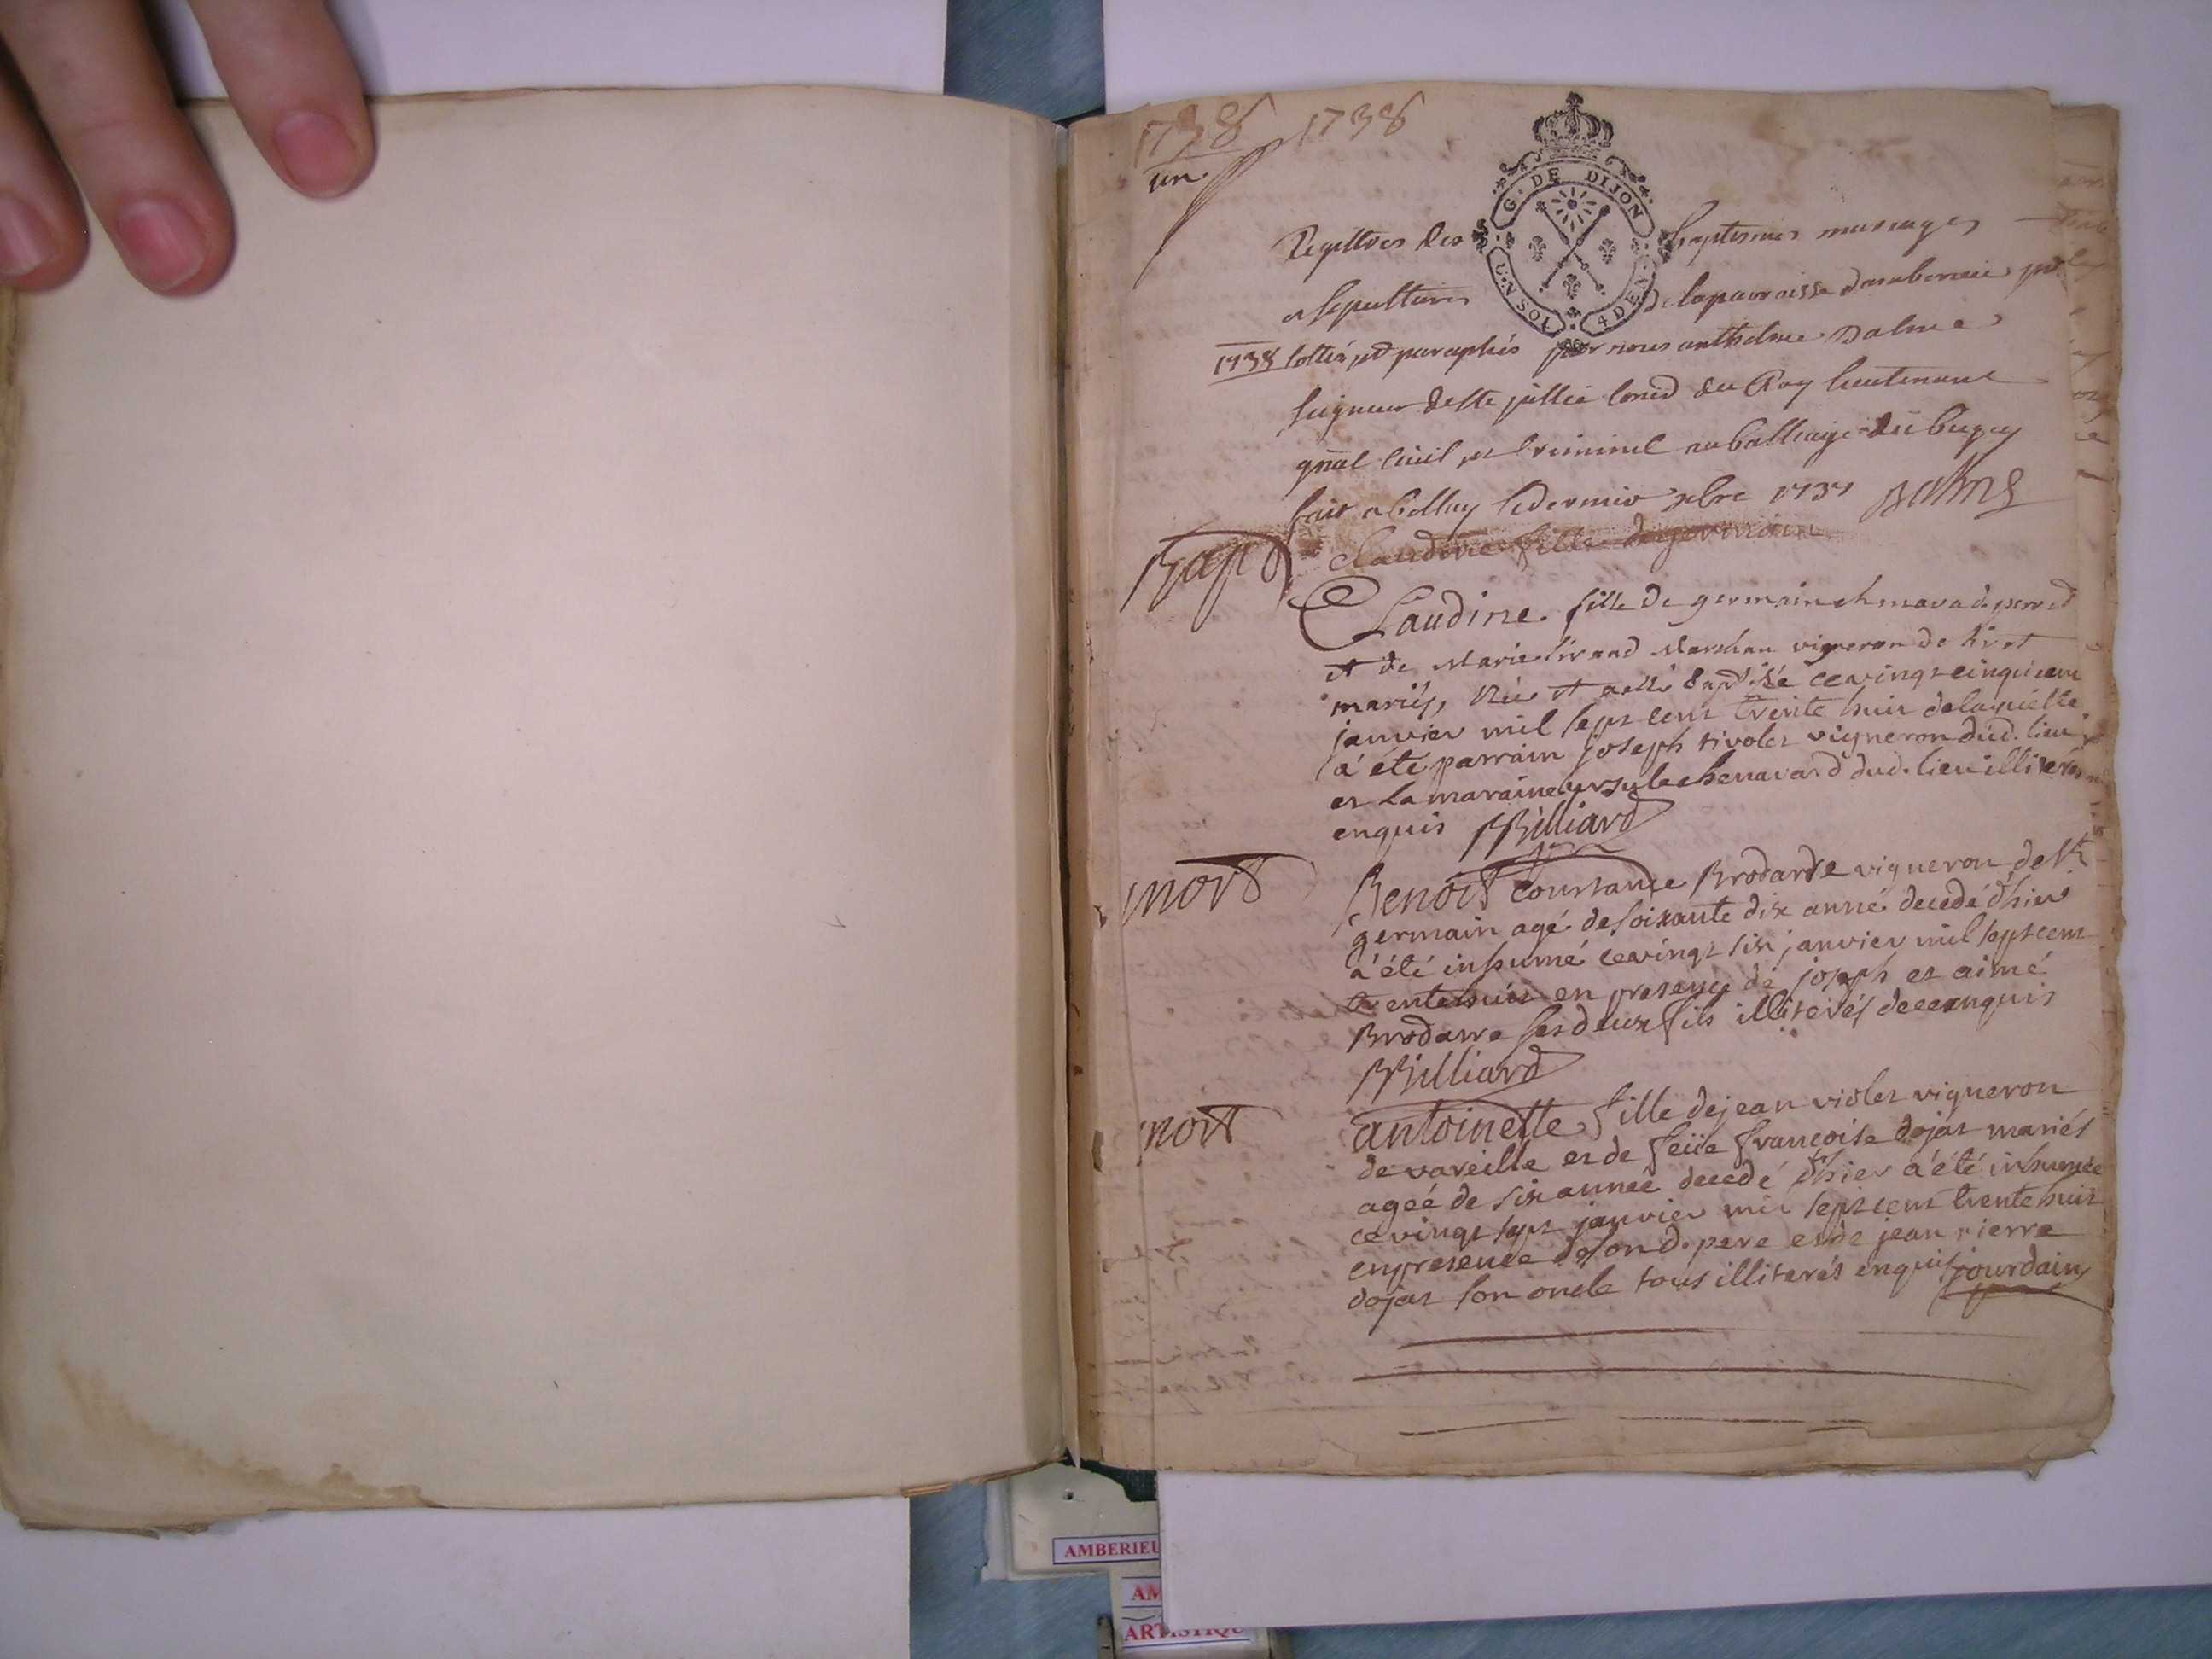 1738 1738
un
G. DE DIJON
UN SOL 4 DEN.
Registres des baptesmes mariages
et sepultures de la parroisse damberieu pr
1738 cottés et paraphés par nous anthelme Balme
seigneur de Ste jullie Coner du Roy lieutenant
gnal Civil et Criminel au balliage du bugey
fait a belley le dernier xbre 1737 Balme
Bapt Claudine fille de germain
Claudine fille de germain chenavad
et de Marie vigneron de tiret
mariés, Née et a été baptisée ce vingt cinquieme
janvier mil sept cent trente huit de laquelle
a été parrain joseph tivolet vigneron dud. lieu
et la maraine ursule chenavard dud. lieu illiterés
enquis Billiard
mort Benoit Brodarde vigneron de St
germain agé de soixante dix anné decedé d'hier
a été inhumé ce vingt six janvier mil sept cent
trente huit en presence de joseph et aimé
Brodarre ses deux fils illiterés de ce enquis
Billiard
mort antoinette fille de jean violet vigneron
de vareille et de feüe françoise dojat mariés
ageé de six anneé decedé d'hier a été inhumée
ce vingt sept janvier mil sept cent trente huit
en presence de son d. pere et de jean pierre
dojat son oncle tous illiterés enquis jourdain
AMBERIEU
AM
ARTISTIQU